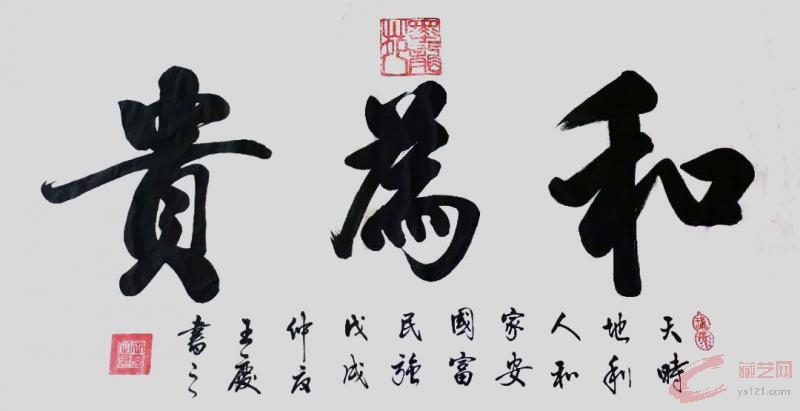 和為貴
天時
地利
人和
家安
國富
民強
戊戌
仲夏
王慶
書之
藏艺网
ys121.com